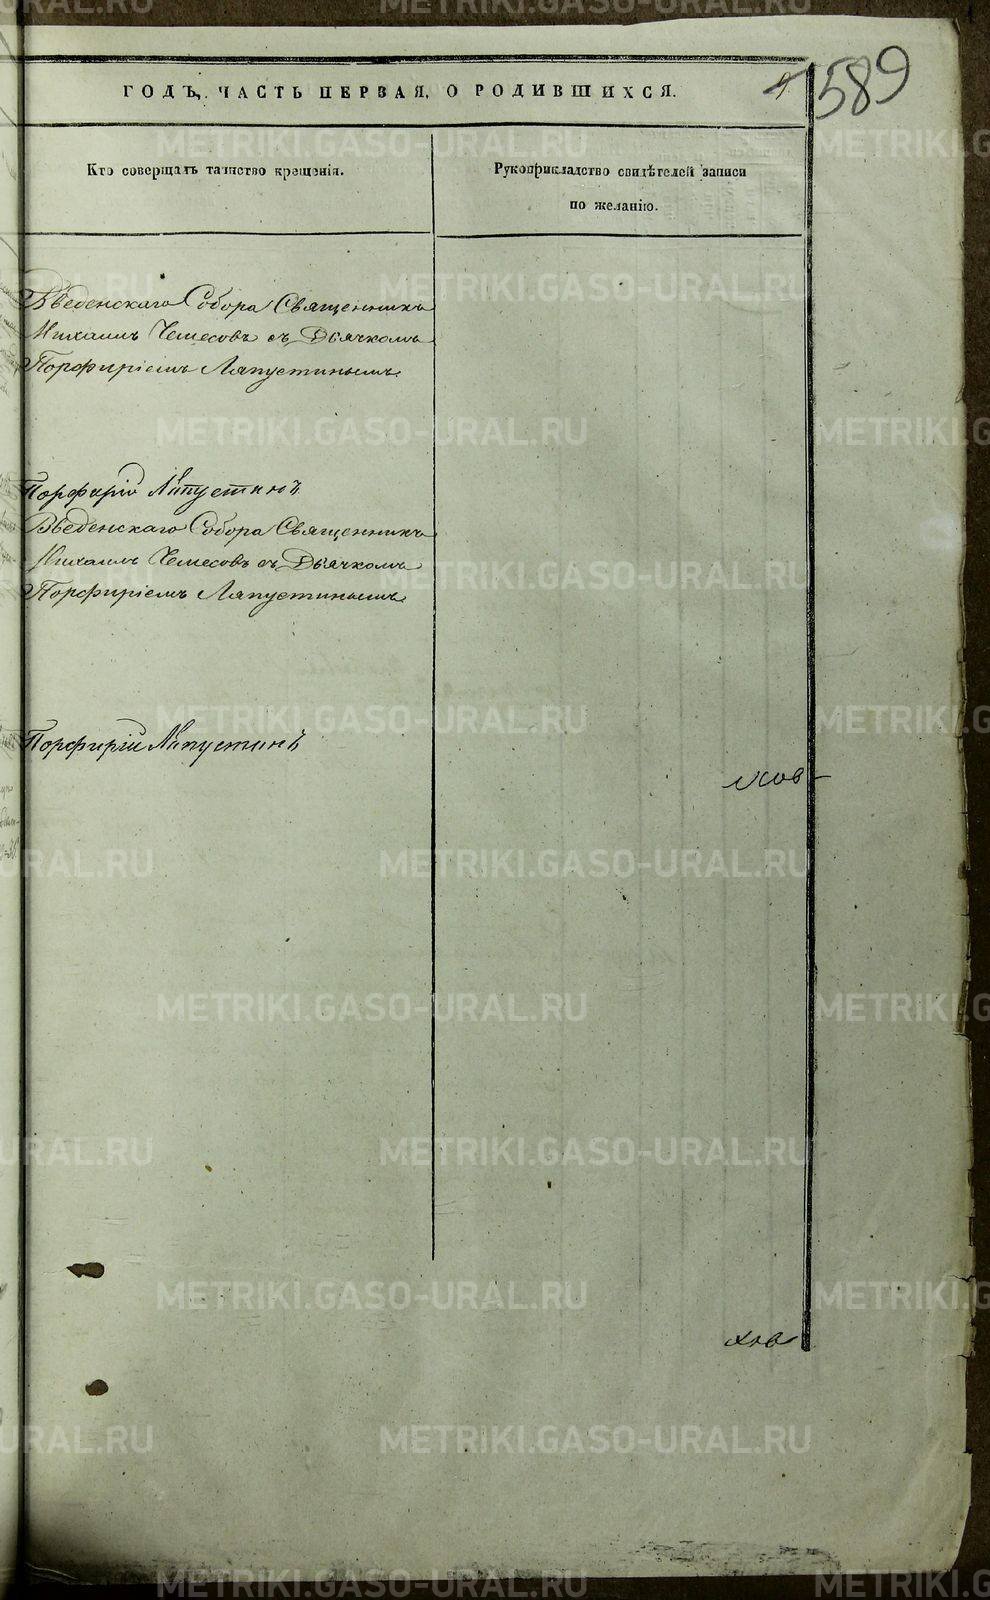 ГОДЪ, ЧАСТЬ ПЕРВАЯ, О РОДИВШИХСЯ.
589
Кто совершалъ таинство крещенія.
Рукоприкладство свидѣтелей записи
по желанію.
Введенскаго Собора Священникъ
Михаилъ Чемесовъ съ Дьячкомъ
Порфиріемъ Ляпустинымъ
Порфирій Ляпустинъ
Введенскаго Собора Священникъ
Михаилъ Чемесовъ съ Дьячкомъ
Порфиріемъ Ляпустинымъ
Порфирій Ляпустинъ
METRIKI.GASO-URAL.RU